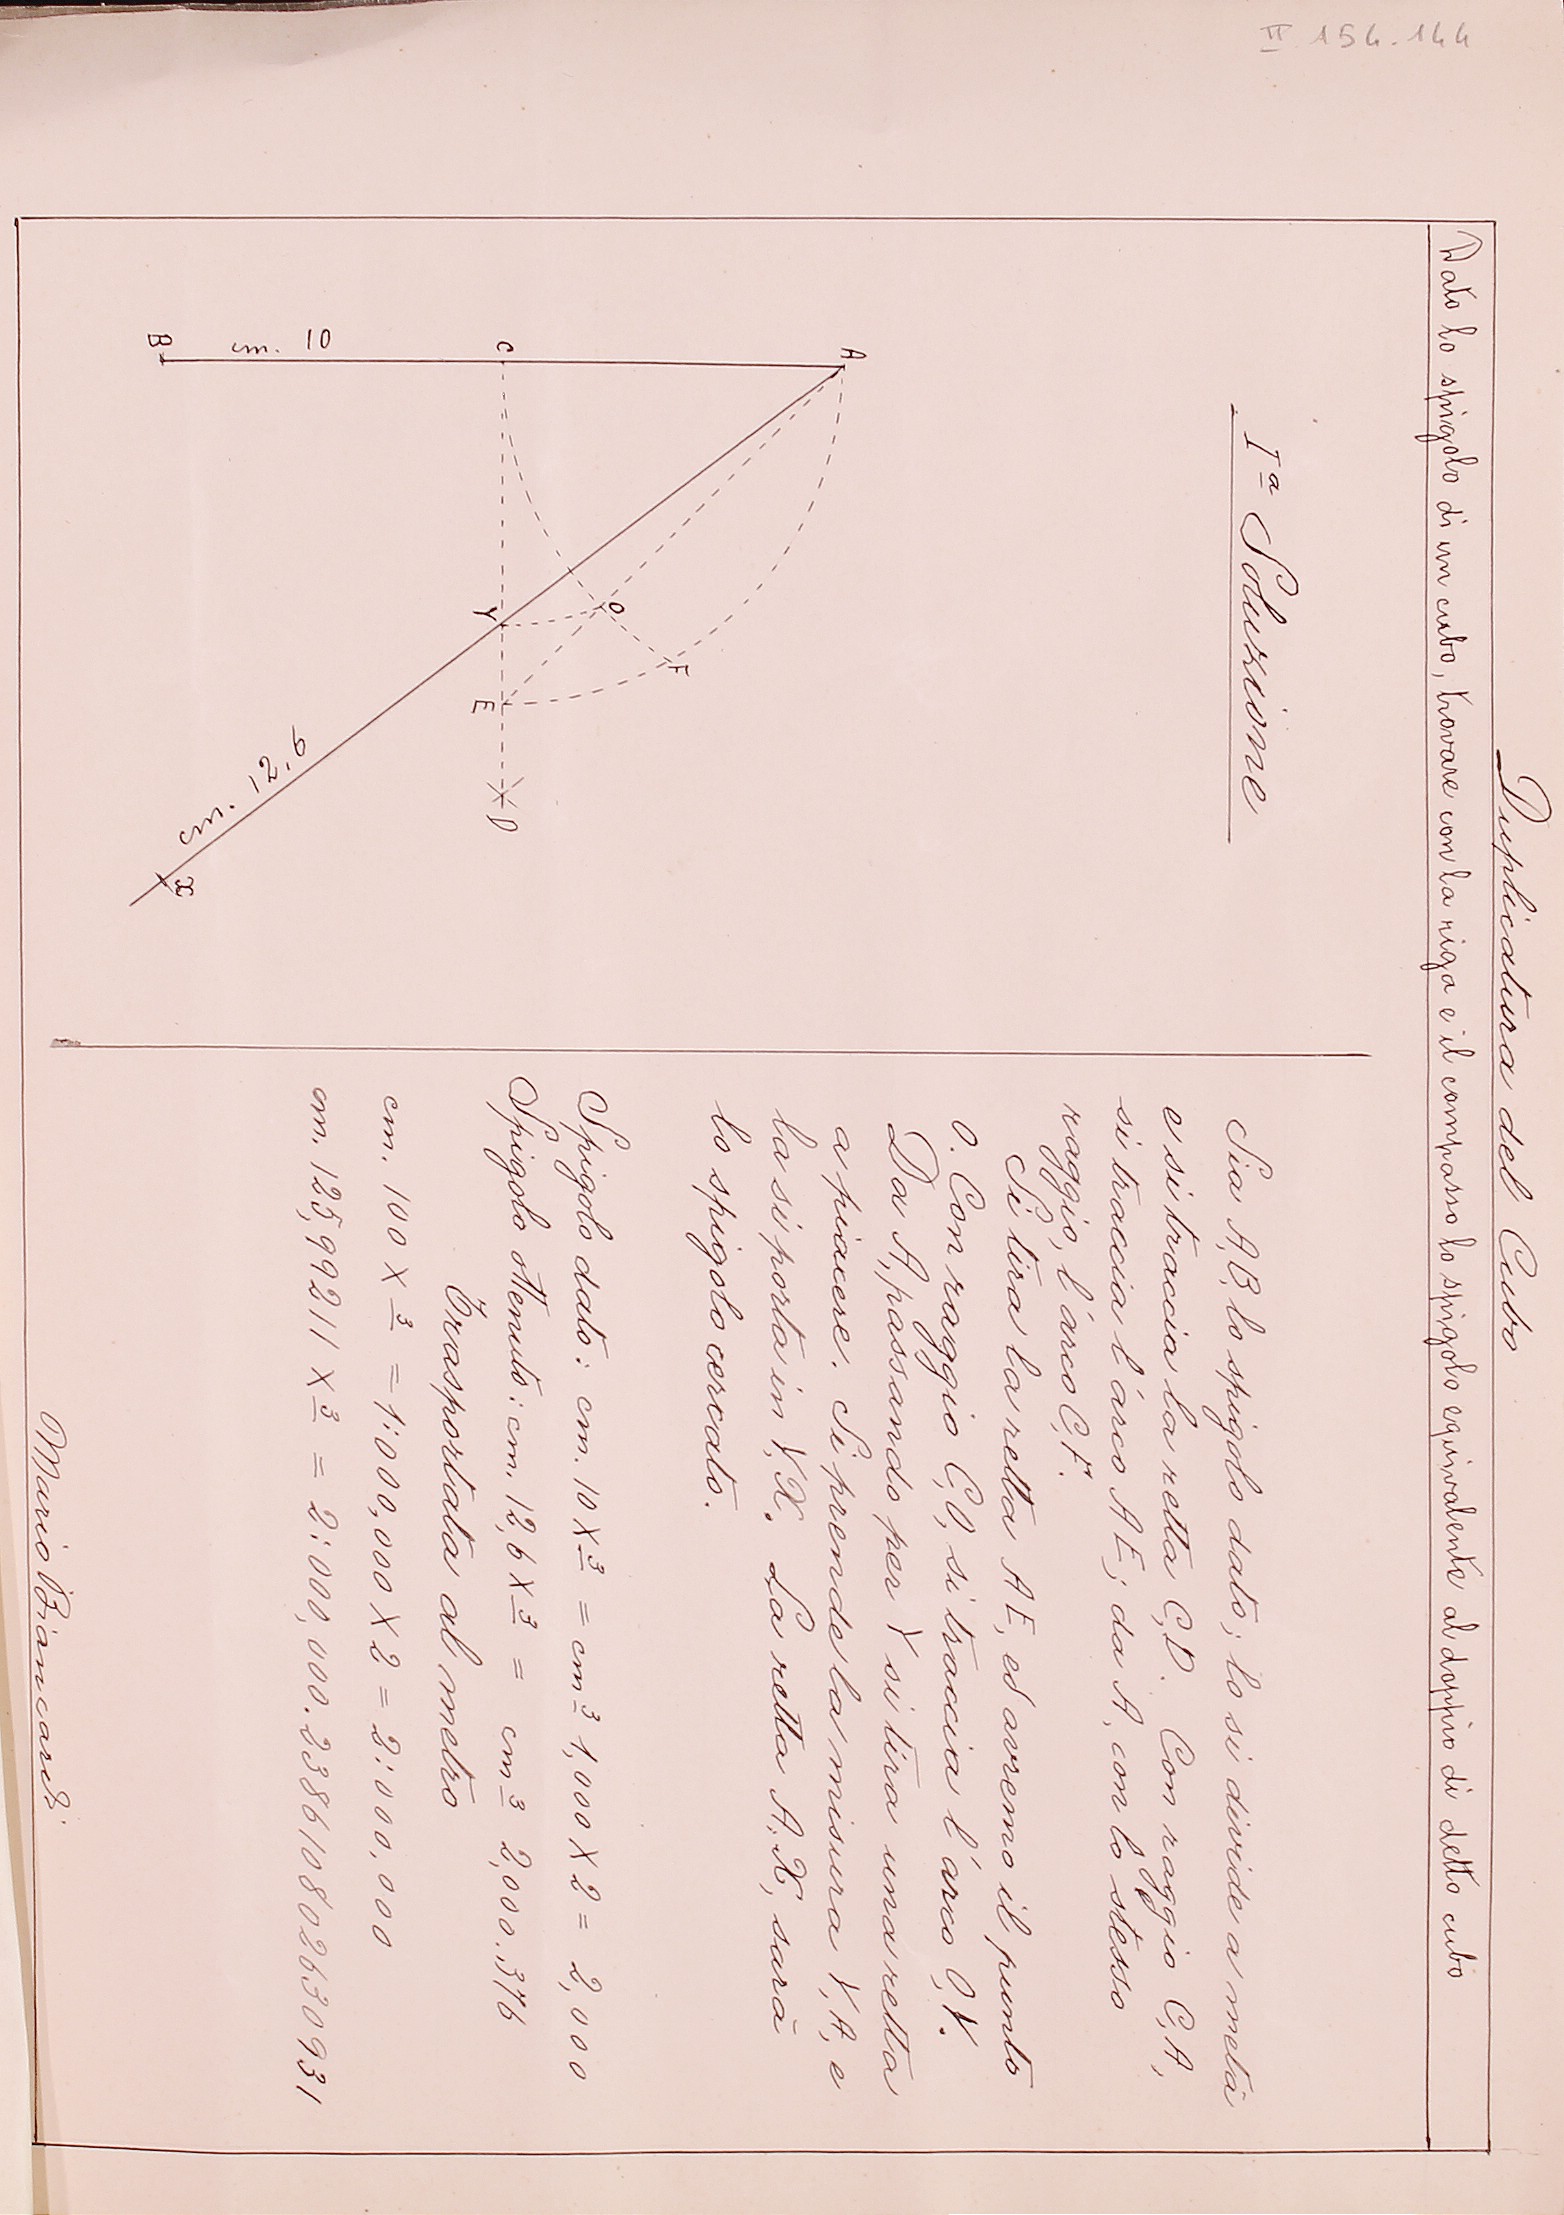 II 154.144
Duplicatura del Cubo
Dato lo spigolo di un cubo, trovare con la riga e il compasso lo spigolo equivalente al doppio di detto cubo
Iª Soluzione
A
C
B
cm. 10
O
F
Y
E
D
cm. 12.6
X
Sia A,B, lo spigolo dato; lo si divide a metà
e si traccia la retta C,D. Con raggio C,A,
si traccia l'arco A E; da A, con lo stesso
raggio, l'arco C,F.
Si tira la retta A E, ed avremo il punto
O. Con raggio C,O, si traccia l'arco O,Y.
Da A, passando per Y si tira una retta
a piacere. Si prende la misura Y,A, e
la si porta in Y,X. La retta A,X, sarà
lo spigolo cercato.
Spigolo dato: cm. 10 x ³ = cm ³ 1,000 X 2 = 2,000
Spigolo ottenuto: cm. 12,6 x ³ = cm ³ 2,000.376
Trasportata al metro
cm. 100 x ³ = 1:000,000 X 2 = 2:000,000
cm. 125,99211 x ³ = 2:000,000.238610802630931
Mario Biancardi